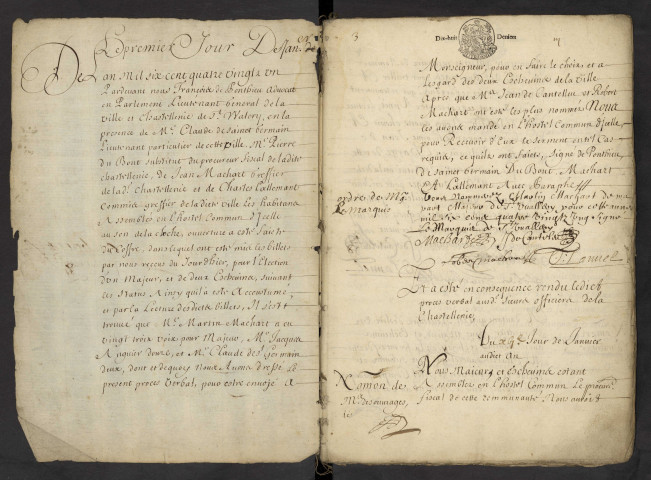 Le premier Jour De Jan.er
De L'an mil six cent quatre vingtz un
Pardevant nous François de Ponthieu Advocat
en Parlement Lieutenant General de la
ville et Chastellenie de St Walery, en la
presence de Mre Claude de Sainct Germain
Lieutenant particulier de cette ville, Mre Pierre
du Bout substitut du procureur fiscal de ladite
chastellenie, de Jean Machart greffier
de lad. Chastellenie et de Charles Lallemant
Commis greffier de ladite ville Les habitans
Assemblés en L'hostel Commun d'Icelle
au son de la cloche, ouverture a esté faicte
du Coffre, dans lequel ont esté mis les billets
par nous receus du Jourd'hier, pour l'election
d'un Majeur, et de deux Eschevins, suivant
les Statuts Ainsy qu'il a esté Accoutumé,
et par la Lecture desdits billets, Il s'est
trouvé que Mre Martin Machart a eu
vingt trois voix pour Majeur, Mre Jacques
Riquier douze, et Mre Claude de St Germain
deux, dont et de quoy Nous Avons dressé Le
present procès Verbal, pour estre envoyé A
3
Dix-huit Deniers
Monseigneur, pour en faire le choix, et a
l'esgard des deux Eschevins de la ville
Après que Mre Jean de Cantelleu et Robert
Machart ont esté les plus nommés Nous
les avons mandé en L'hostel Commun d'Icelle,
pour Recevoir d'Eux le serment en tel Cas
requis, ce qu'ils ont faict, Signé de Ponthieu
de Sainct Germain Du Bout Machart
et Lallemant Avec Paraphe
ordre de Mr
Le Marquis
Nous Nommons Martin Machart
part Maieur de St Vuallery pour cette année
mil six cent quatre vingt un signé
Le Marquis de St Vuallery
Machart De Cantelleu
Robert Machart
Et a esté en consequence rendu ledict
procès verbal ausd. Sieurs officiers de la
Chastellenie,
Jour de Janvier
audict an
Nomon. de
Mrs des ouvrages,
Nous Maieurs et Eschevins estant
Assemblés en L'hostel Commun Le procur.
fiscal de cette communauté Nous auroit